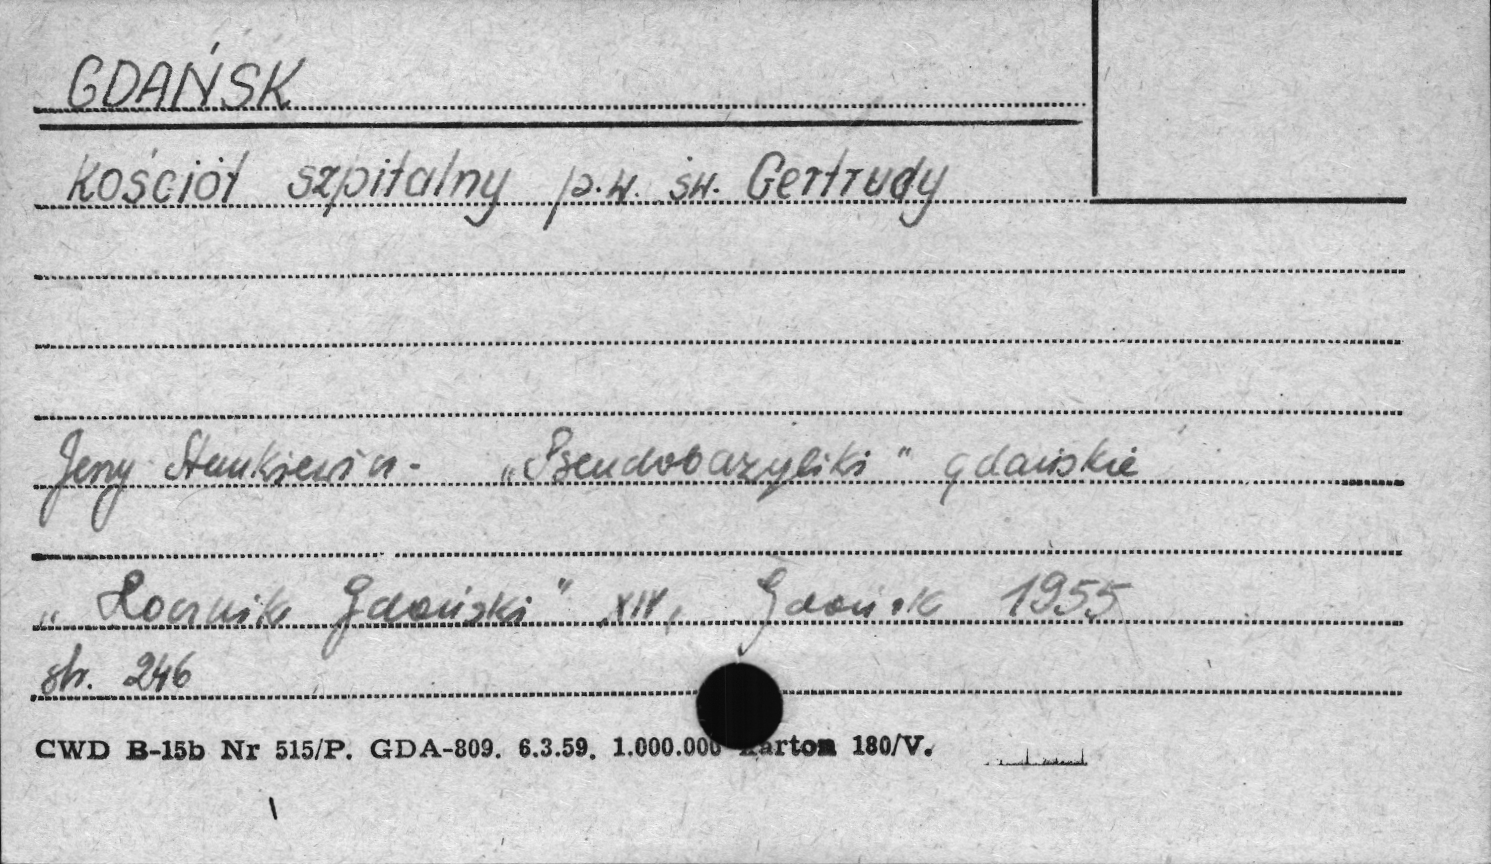 GDAŃSK
Kościół szpitalny p.w. św. Gertrudy
Jerzy Stankiewicz - „Pseudobazyliki" gdańskie
„Rocznik Gdański" XIV, Gdańsk 1955
str. 246
CWD B-15b Nr 515/P. GDA-809. 6.3.59. 1.000.000 karton 180/V.